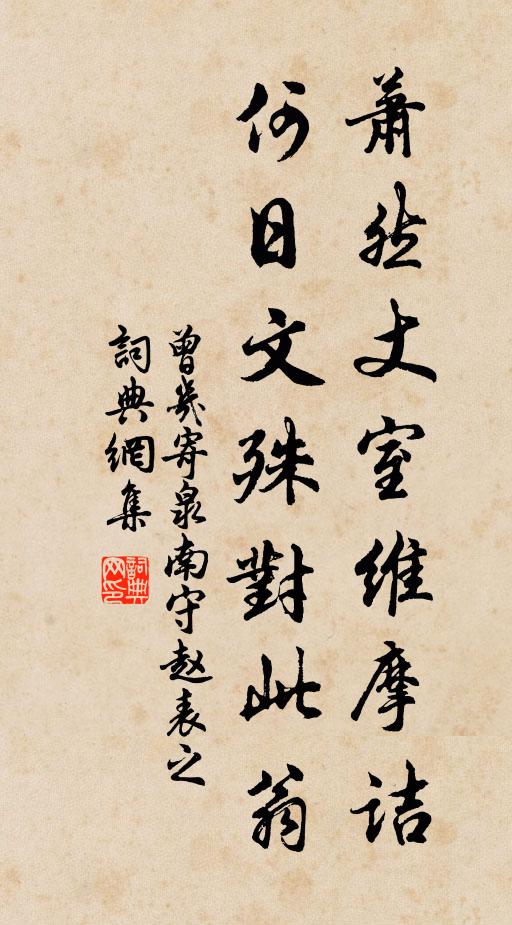 蕭然丈室維摩詰
何日文殊對此翁
曾幾寄泉南守赵表之
詞典網集
詞典网印